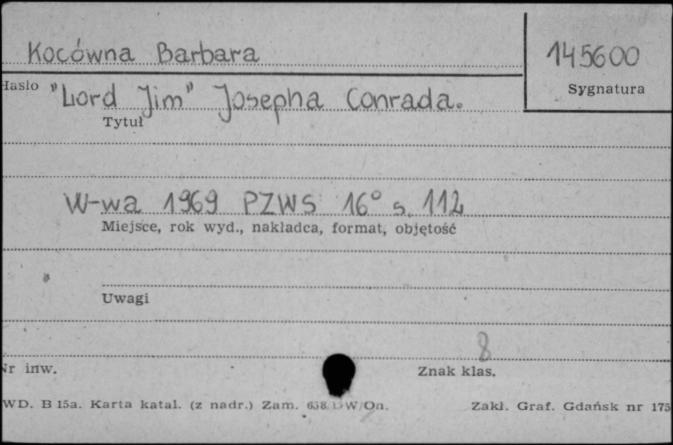 Kocówna Barbara
145600
Hasło
Sygnatura
"Lord Jim" Josepha Conrada.
Tytuł
W-wa 1969 PZWS 16° s. 112
Miejsce, rok wyd., nakładca, format, objętość
Uwagi
8
Nr inw.
Znak klas.
WD. B 15a. Karta katal. (z nadr.) Zam.
Zakł. Graf. Gdańsk nr 175